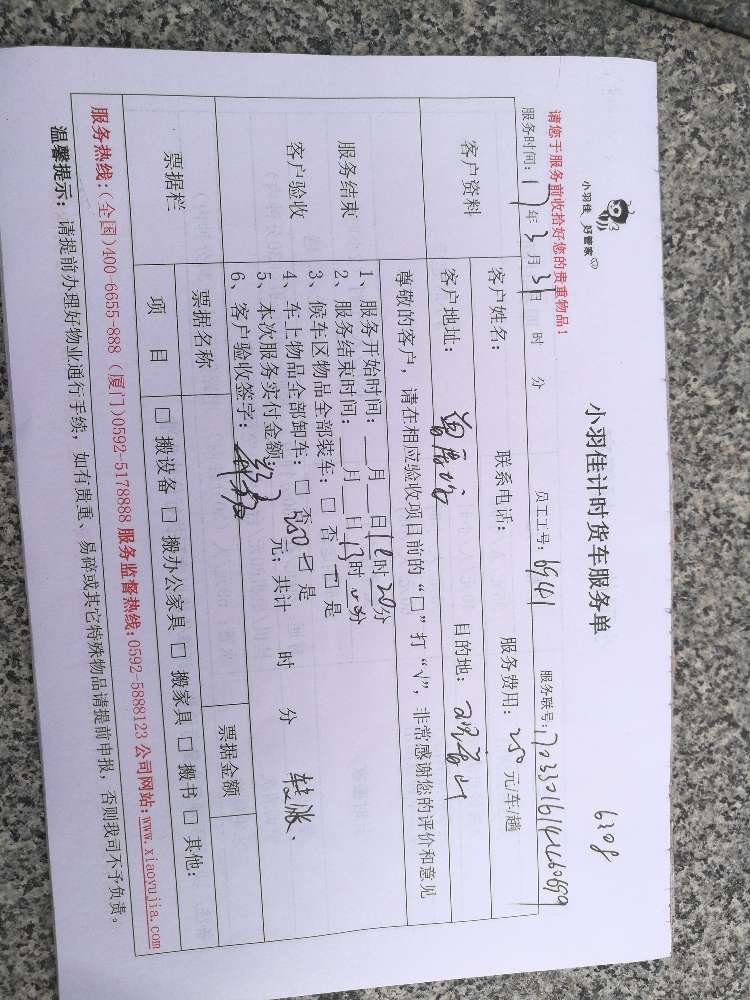 6208
小羽佳 好管家
小羽佳计时货车服务单
请您于服务前收拾好您的贵重物品!
服务时间: 17年3月31日 时 分 员工工号: 6941 服务联号:
客户资料
客户姓名: 联系电话: 服务费用: 250元/车/趟
客户地址: 目的地:
尊敬的客户, 请在相应验收项目前的“□”打“√”, 非常感谢您的评价和意见
服务结束
客户验收
1、服务开始时间: 月 日 时20分
2、服务结束时间: 月 日13时00分
3、候车区物品全部装车: □ 否 □ 是
4、车上物品全部卸车: □ 否 □ 是
5、本次服务实付金额: 250元; 共计 时 分 转账、
6、客户验收签字:
票据栏
票据名称 票据金额
项 目 □ 搬设备 □ 搬办公家具 □ 搬家具 □ 搬书 □ 其他:
服务热线:(全国)400-6655-888 (厦门)0592-5178888 服务监督热线:0592-5888123 公司网站:www.xiaoyujia.com
温馨提示: 请提前办理好物业通行手续, 如有贵重、易碎或其它特殊物品请提前申报, 否则我司不予负责。